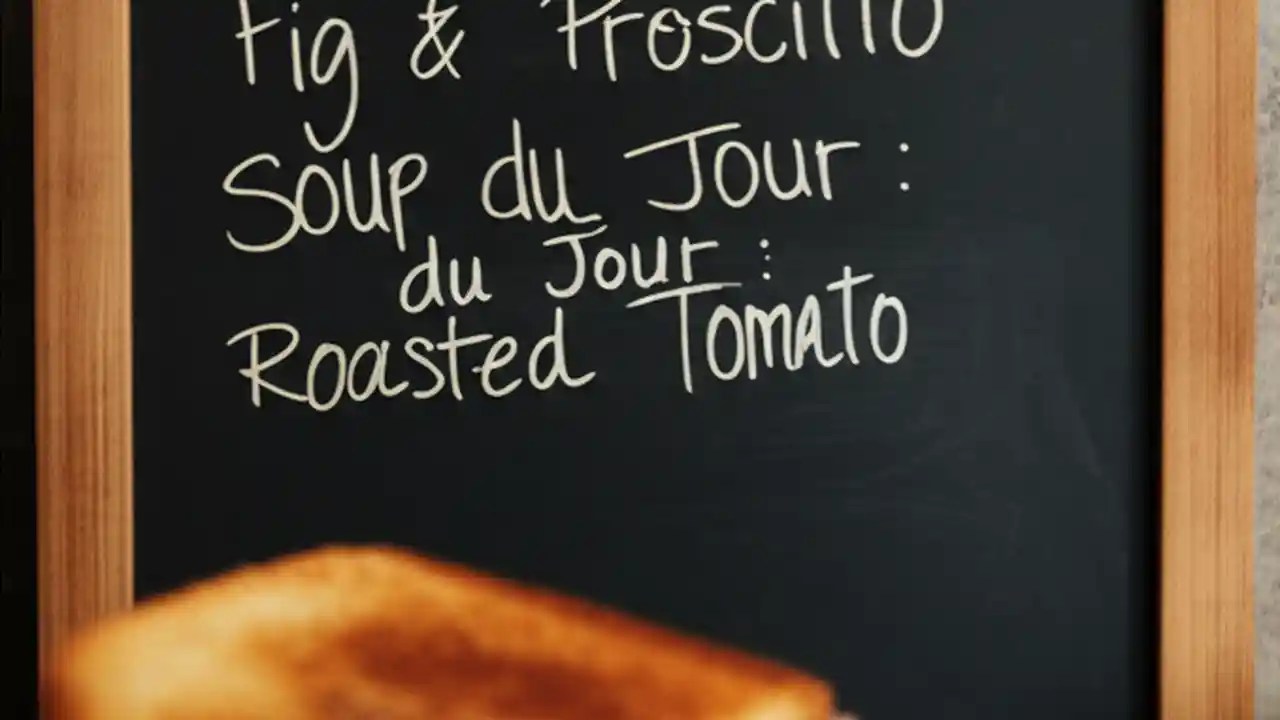 Fig & Proscitto
Soup du Jour :
du Jour :
Roasted Tomato